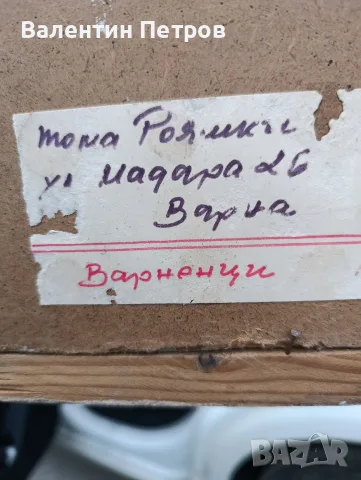 Валентин Петров
Тома
ул Мадара 26
Варна
Варненци
BAZAR